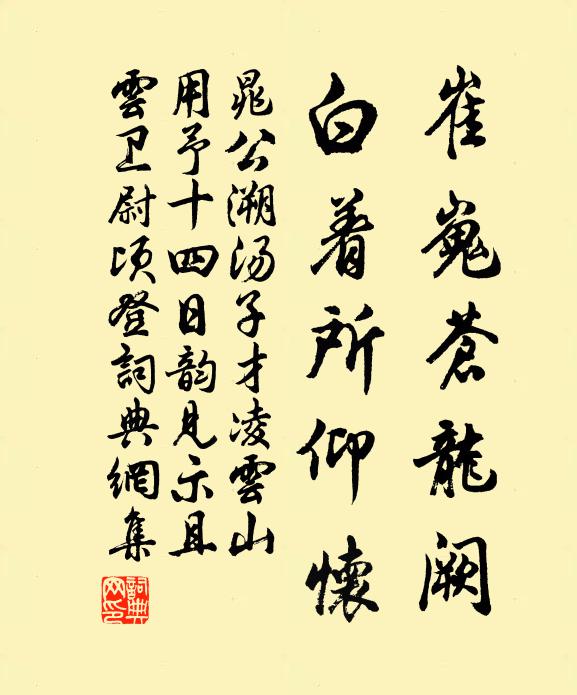 崔嵬蒼龍阙
白着所仰懷
晁公溯汤子才凌雲山
用予十四日韵見示且
雲卫尉頃登詞典網集
詞典网印